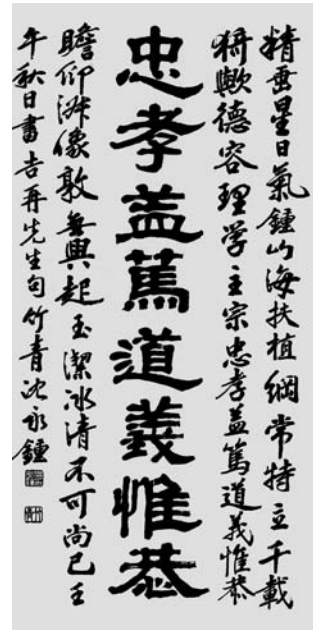 精垂星日氣鍾山海扶植綱常特立千載
猗歟德容理学主宗忠孝盖篤道義惟恭
忠孝盖篤道義惟恭
瞻仰像孰無興起玉潔冰清不可尚已壬
午秋日書吉再先生句竹青沈永鍾